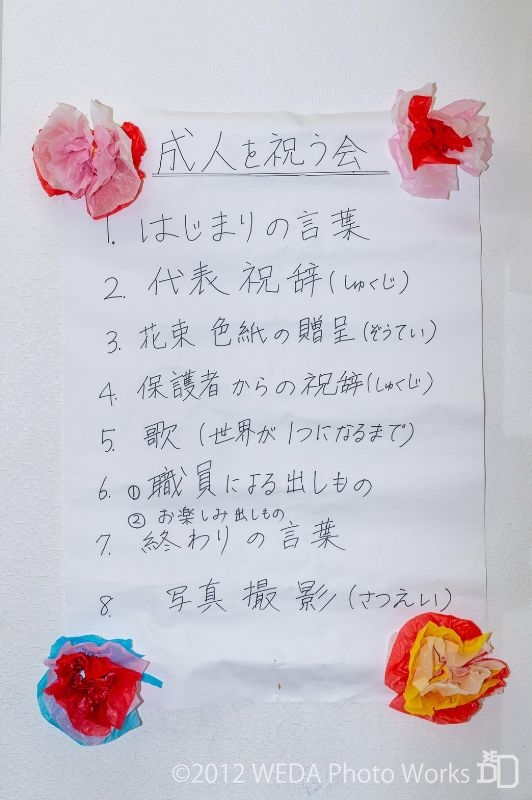 成人を祝う会
1. はじまりの言葉
2. 代表 祝辞(しゅくじ)
3. 花束 色紙の贈呈(ぞうてい)
4. 保護者からの祝辞(しゅくじ)
5. 歌 (世界が1つになるまで)
6. ①職員による出しもの
② お楽しみ出しもの
7. 終わりの言葉
8. 写真 撮影(さつえい)
©2012 WEDA Photo Works